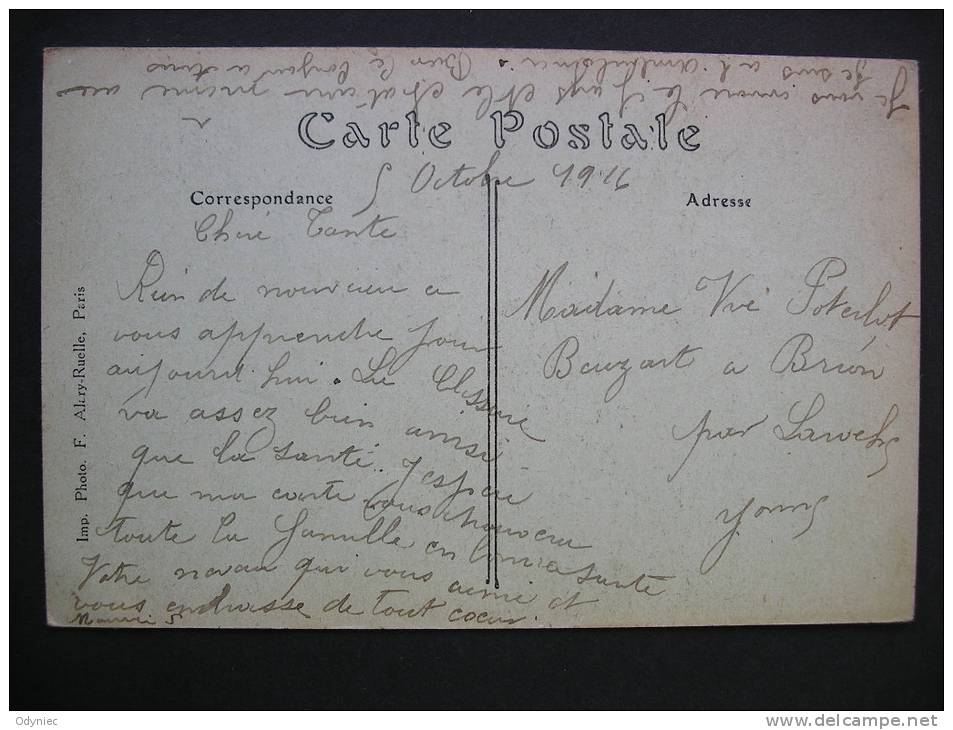 Je vous envoie le Pays et le chateau même ou
je suis a l'ambulance.
Bien le bonjour a tous
Carte Postale
5 Octobre 1916
Correspondance
Adresse
Chère Tante
Rien de nouveau a
vous apprendre pour
aujourd hui. La Blessure
va assez bien ainsi
que la santé. J'espère
que ma carte vous trouvera
toute la famille en bonne santé
Votre neveu qui vous aime et
vous embrasse de tout coeur.
Madame Vve Poterlot
Bouzart a Brion
par Laroche
Yonne
Imp. Photo. F. Alary-Ruelle, Paris
Odyniec
www.delcampe.net